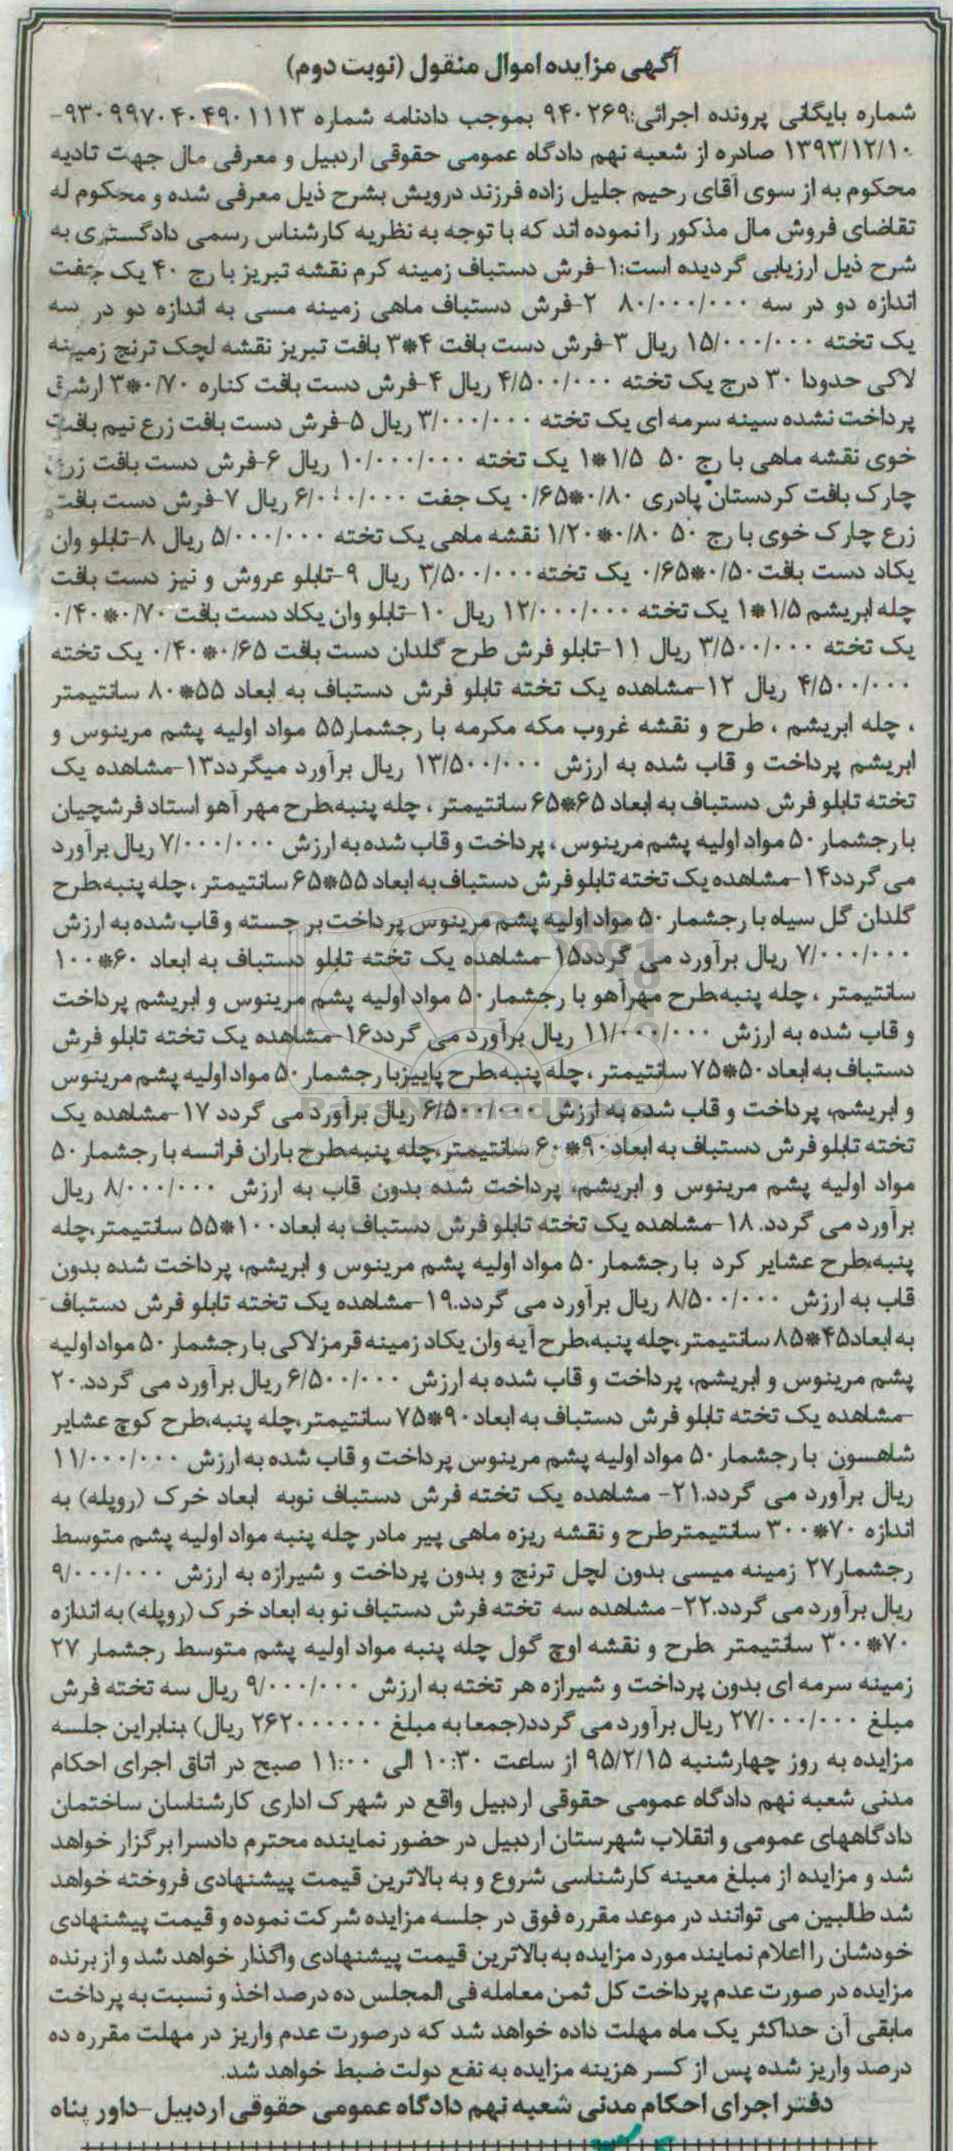 آگهی مزایده اموال منقول (نوبت دوم)
شماره بایگانی پرونده اجرائی:۹۴۰۲۶۹ بموجب دادنامه شماره ۹۳۰۹۹۷۰۴۰۴۹۰۱۱۱۳-
۱۳۹۳/۱۲/۱۰ صادره از شعبه نهم دادگاه عمومی حقوقی اردبیل و معرفی مال جهت تادیه
محکوم به از سوی آقای رحیم جلیل زاده فرزند درویش بشرح ذیل معرفی شده و محکوم له
تقاضای فروش مال مذکور را نموده اند که با توجه به نظریه کارشناس رسمی دادگستری به
شرح ذیل ارزیابی گردیده است:۱-فرش دستباف زمینه کرم نقشه تبریز با رج ۴۰ یک جفت
اندازه دو در سه ۸۰/۰۰۰/۰۰۰ ۲-فرش دستباف ماهی زمینه مسی به اندازه دو در سه
یک تخته ۱۵/۰۰۰/۰۰۰ ریال ۳-فرش دست بافت ۴*۳ بافت تبریز نقشه لچک ترنج زمینه
لاکی حدودا ۳۰ درج یک تخته ۴/۵۰۰/۰۰۰ ریال ۴-فرش دست بافت کناره ۰/۷۰*۳ ارشق
پرداخت نشده سینه سرمه ای یک تخته ۳/۰۰۰/۰۰۰ ریال ۵-فرش دست بافت زرع نیم بافت
خوی نقشه ماهی با رج ۵۰ ۱/۵*۱ یک تخته ۱۰/۰۰۰/۰۰۰ ریال ۶-فرش دست بافت زرع
چارک بافت کردستان پادری ۰/۸۰*۰/۶۵ یک جفت ۶/۰۰۰/۰۰۰ ریال ۷-فرش دست بافت
زرع چارک خوی با رج ۵۰ ۰/۸۰*۱/۲۰ نقشه ماهی یک تخته ۵/۰۰۰/۰۰۰ ریال ۸-تابلو وان
یکاد دست بافت۰/۵۰*۰/۶۵ یک تخته۳/۵۰۰/۰۰۰ ریال ۹-تابلو عروش و نیز دست بافت
چله ابریشم ۱/۵*۱ یک تخته ۱۲/۰۰۰/۰۰۰ ریال ۱۰-تابلو وان یکاد دست بافت ۰/۷۰*۰/۴۰
یک تخته ۳/۵۰۰/۰۰۰ ریال ۱۱-تابلو فرش طرح گلدان دست بافت ۰/۶۵*۰/۴۰ یک تخته
۴/۵۰۰/۰۰۰ ریال ۱۲-مشاهده یک تخته تابلو فرش دستباف به ابعاد ۵۵*۸۰ سانتیمتر
، چله ابریشم ، طرح و نقشه غروب مکه مکرمه با رجشمار۵۵ مواد اولیه پشم مرینوس و
ابریشم پرداخت و قاب شده به ارزش ۱۳/۵۰۰/۰۰۰ ریال برآورد میگردد۱۳-مشاهده یک
تخته تابلو فرش دستباف به ابعاد ۶۵*۶۵ سانتیمتر ، چله پنبه،طرح مهر آهو استاد فرشچیان
با رجشمار ۵۰ مواد اولیه پشم مرینوس ، پرداخت و قاب شده به ارزش ۷/۰۰۰/۰۰۰ ریال برآورد
می گردد۱۴-مشاهده یک تخته تابلو فرش دستباف به ابعاد ۵۵*۶۵ سانتیمتر ، چله پنبه،طرح
گلدان گل سیاه با رجشمار ۵۰ مواد اولیه پشم مرینوس پرداخت بر جسته و قاب شده به ارزش
۷/۰۰۰/۰۰۰ ریال برآورد می گردد۱۵-مشاهده یک تخته تابلو دستباف به ابعاد ۶۰*۱۰۰
سانتیمتر ، چله پنبه،طرح مهرآهو با رجشمار۵۰ مواد اولیه پشم مرینوس و ابریشم پرداخت
و قاب شده به ارزش ۱۱/۰۰۰/۰۰۰ ریال برآورد می گردد۱۶-مشاهده یک تخته تابلو فرش
دستباف به ابعاد۵۰*۷۵ سانتیمتر ، چله پنبه،طرح پاییزبا رجشمار ۵۰ مواد اولیه پشم مرینوس
و ابریشم، پرداخت و قاب شده به ارزش ۶/۵۰۰/۰۰۰ ریال برآورد می گردد ۱۷-مشاهده یک
تخته تابلو فرش دستباف به ابعاد۹۰*۶۰ سانتیمتر،چله پنبه،طرح باران فرانسه با رجشمار۵۰
مواد اولیه پشم مرینوس و ابریشم، پرداخت شده بدون قاب به ارزش ۸/۰۰۰/۰۰۰ ریال
برآورد می گردد. ۱۸-مشاهده یک تخته تابلو فرش دستباف به ابعاد۱۰۰*۵۵ سانتیمتر،چله
پنبه،طرح عشایر کرد با رجشمار ۵۰ مواد اولیه پشم مرینوس و ابریشم، پرداخت شده بدون
قاب به ارزش ۸/۵۰۰/۰۰۰ ریال برآورد می گردد.۱۹-مشاهده یک تخته تابلو فرش دستباف
به ابعاد۴۵*۸۵ سانتیمتر،چله پنبه،طرح آیه وان یکاد زمینه قرمزلاکی با رجشمار ۵۰ مواد اولیه
پشم مرینوس و ابریشم، پرداخت و قاب شده به ارزش ۶/۵۰۰/۰۰۰ ریال برآورد می گردد.۲۰
-مشاهده یک تخته تابلو فرش دستباف به ابعاد۹۰*۷۵ سانتیمتر،چله پنبه،طرح کوچ عشایر
شاهسون با رجشمار ۵۰ مواد اولیه پشم مرینوس پرداخت و قاب شده به ارزش ۱۱/۰۰۰/۰۰۰
ریال برآورد می گردد.۲۱- مشاهده یک تخته فرش دستباف نوبه ابعاد خرک (روپله) به
اندازه ۷۰*۳۰۰ سانتیمترطرح و نقشه ریزه ماهی پیر مادر چله پنبه مواد اولیه پشم متوسط
رجشمار۲۷ زمینه میسی بدون لچل ترنج و بدون پرداخت و شیرازه به ارزش ۹/۰۰۰/۰۰۰
ریال برآورد می گردد.۲۲- مشاهده سه تخته فرش دستباف نو به ابعاد خرک (روپله) به اندازه
۷۰*۳۰۰ سانتیمتر ،طرح و نقشه اوچ گول چله پنبه مواد اولیه پشم متوسط رجشمار ۲۷
زمینه سرمه ای بدون پرداخت و شیرازه هر تخته به ارزش ۹/۰۰۰/۰۰۰ ریال سه تخته فرش
مبلغ ۲۷/۰۰۰/۰۰۰ ریال برآورد می گردد(جمعا به مبلغ ۲۶۲۰۰۰۰۰۰ ریال) بنابراین جلسه
مزایده به روز چهارشنبه ۹۵/۲/۱۵ از ساعت ۱۰:۳۰ الی ۱۱:۰۰ صبح در اتاق اجرای احکام
مدنی شعبه نهم دادگاه عمومی حقوقی اردبیل واقع در شهرک اداری کارشناسان ساختمان
دادگاههای عمومی و انقلاب شهرستان اردبیل در حضور نماینده محترم دادسرا برگزار خواهد
شد و مزایده از مبلغ معینه کارشناسی شروع و به بالاترین قیمت پیشنهادی فروخته خواهد
شد طالبین می توانند در موعد مقرره فوق در جلسه مزایده شرکت نموده و قیمت پیشنهادی
خودشان را اعلام نمایند مورد مزایده به بالاترین قیمت پیشنهادی واگذار خواهد شد و از برنده
مزایده در صورت عدم پرداخت کل ثمن معامله فی المجلس ده درصد اخذ و نسبت به پرداخت
مابقی آن حداکثر یک ماه مهلت داده خواهد شد که درصورت عدم واریز در مهلت مقرره ده
درصد واریز شده پس از کسر هزینه مزایده به نفع دولت ضبط خواهد شد.
دفتر اجرای احکام مدنی شعبه نهم دادگاه عمومی حقوقی اردبیل-داور پناه